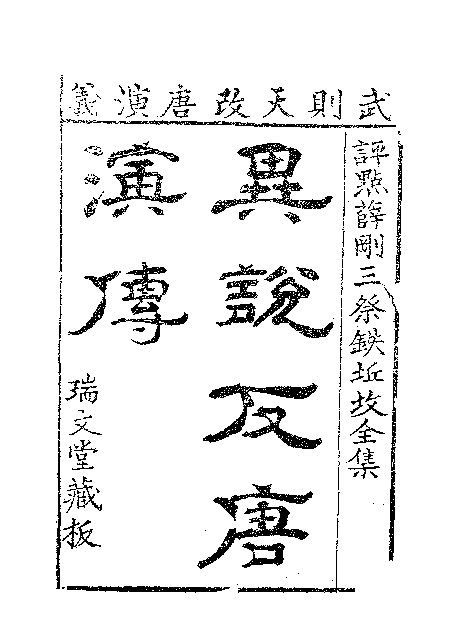 武則天改唐演義
評點薛剛三祭鉄坵坟全集
異說反唐
演傳
瑞文堂藏板